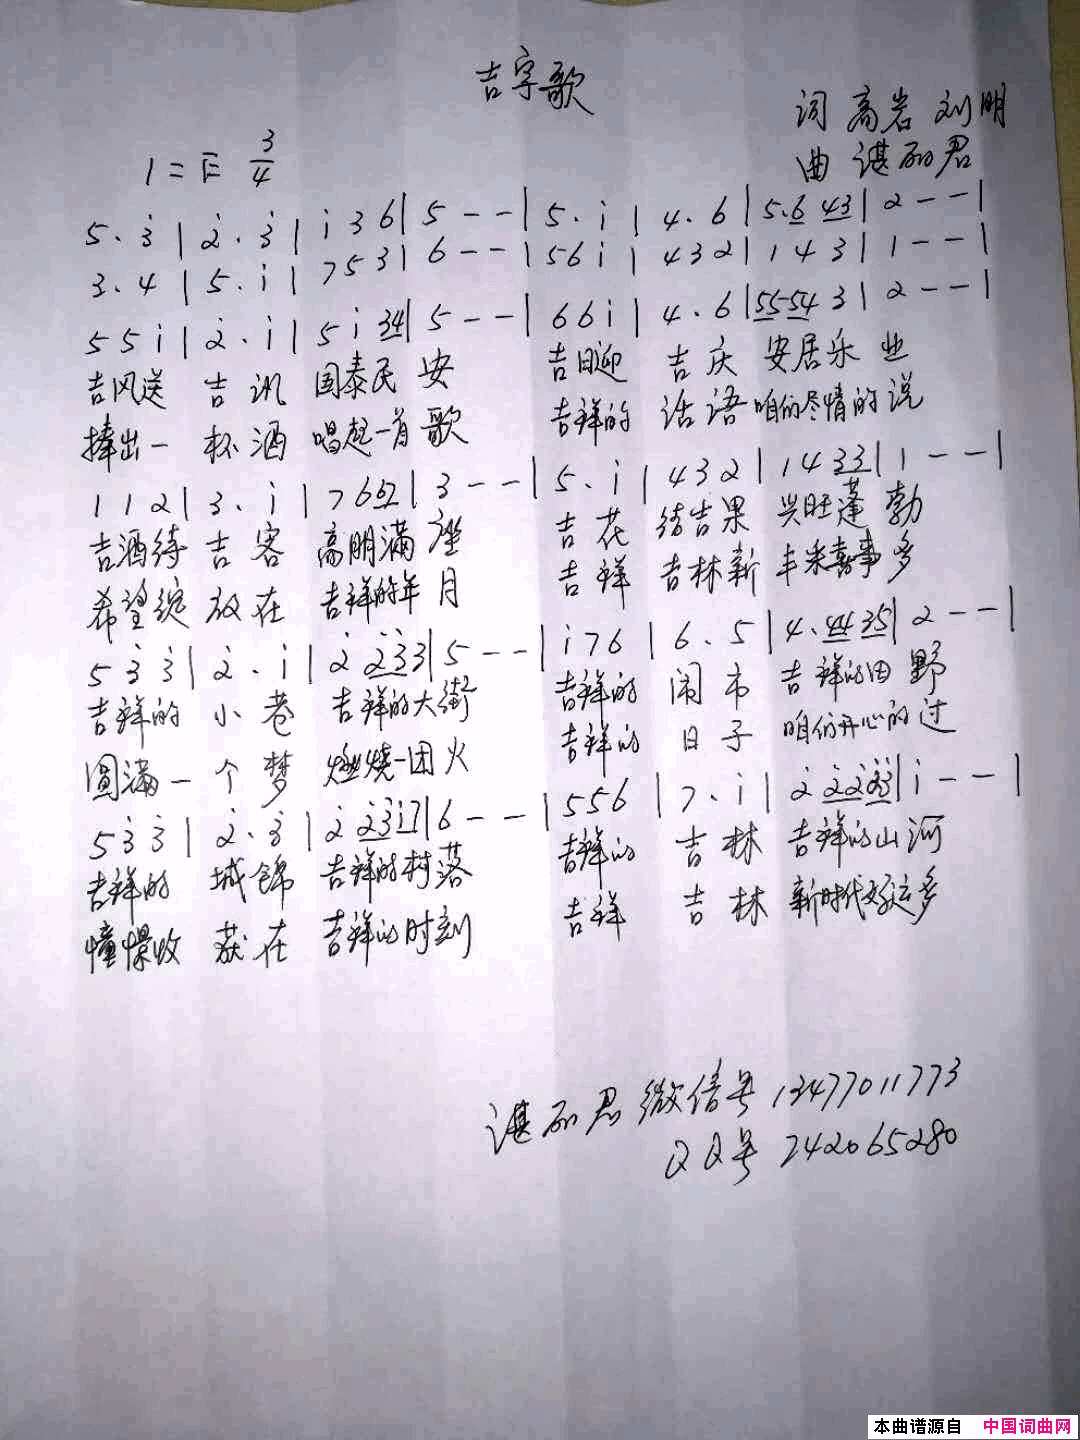 吉字歌
词 高岩 刘明
曲 谌丽君
1=E 3/4
5. 3̇ | 2̇. 3̇ | i 3 6 | 5 - - | 5. i | 4. 6 | 5.6 43 | 2 - - |
3. 4 | 5. i | 7 5 3 | 6 - - | 5 6 i | 4 3 2 | 1 4 3 | 1 - - |
5 5 i | 2̇. i | 5 i 34 | 5 - - | 6 6 i | 4. 6 | 5554 3 | 2 - - |
吉风送 吉讯 国泰民安 吉日迎 吉庆 安居乐业
捧出一 杯酒 唱起一首歌 吉祥的 话语 咱们尽情的说
1 1 2 | 3. i | 7 6 52 | 3 - - | 5. i | 4 3 2 | 1 4 33 | 1 - - |
吉酒待 吉客 高朋满座 吉花 结吉果 兴旺蓬勃
希望绽 放在 吉祥的年月 吉祥 吉林新 丰采喜事多
5 3̇ 3̇ | 2̇. i | 2̇ 2̇3̇ 3̇ | 5 - - | i 7 6 | 6. 5 | 4. 44 35 | 2 - - |
吉祥的 小巷 吉祥的大街 吉祥的 闹市 吉祥的田野
圆满一 个梦 燃烧一团火 吉祥的 日子 咱们开心的过
5 3̇ 3̇ | 2̇. 3̇ | 2̇ 2̇3̇i7 | 6 - - | 5 5 6 | 7. i | 2̇ 2̇2̇3̇3̇ | i - - |
吉祥的 城锦 吉祥的村落 吉祥的 吉林 吉祥的山河
憧憬收 获在 吉祥的时刻 吉祥 吉林 新时代好运多
谌丽君微信号 13477011773
QQ号 742065280
本曲谱源自 中国词曲网